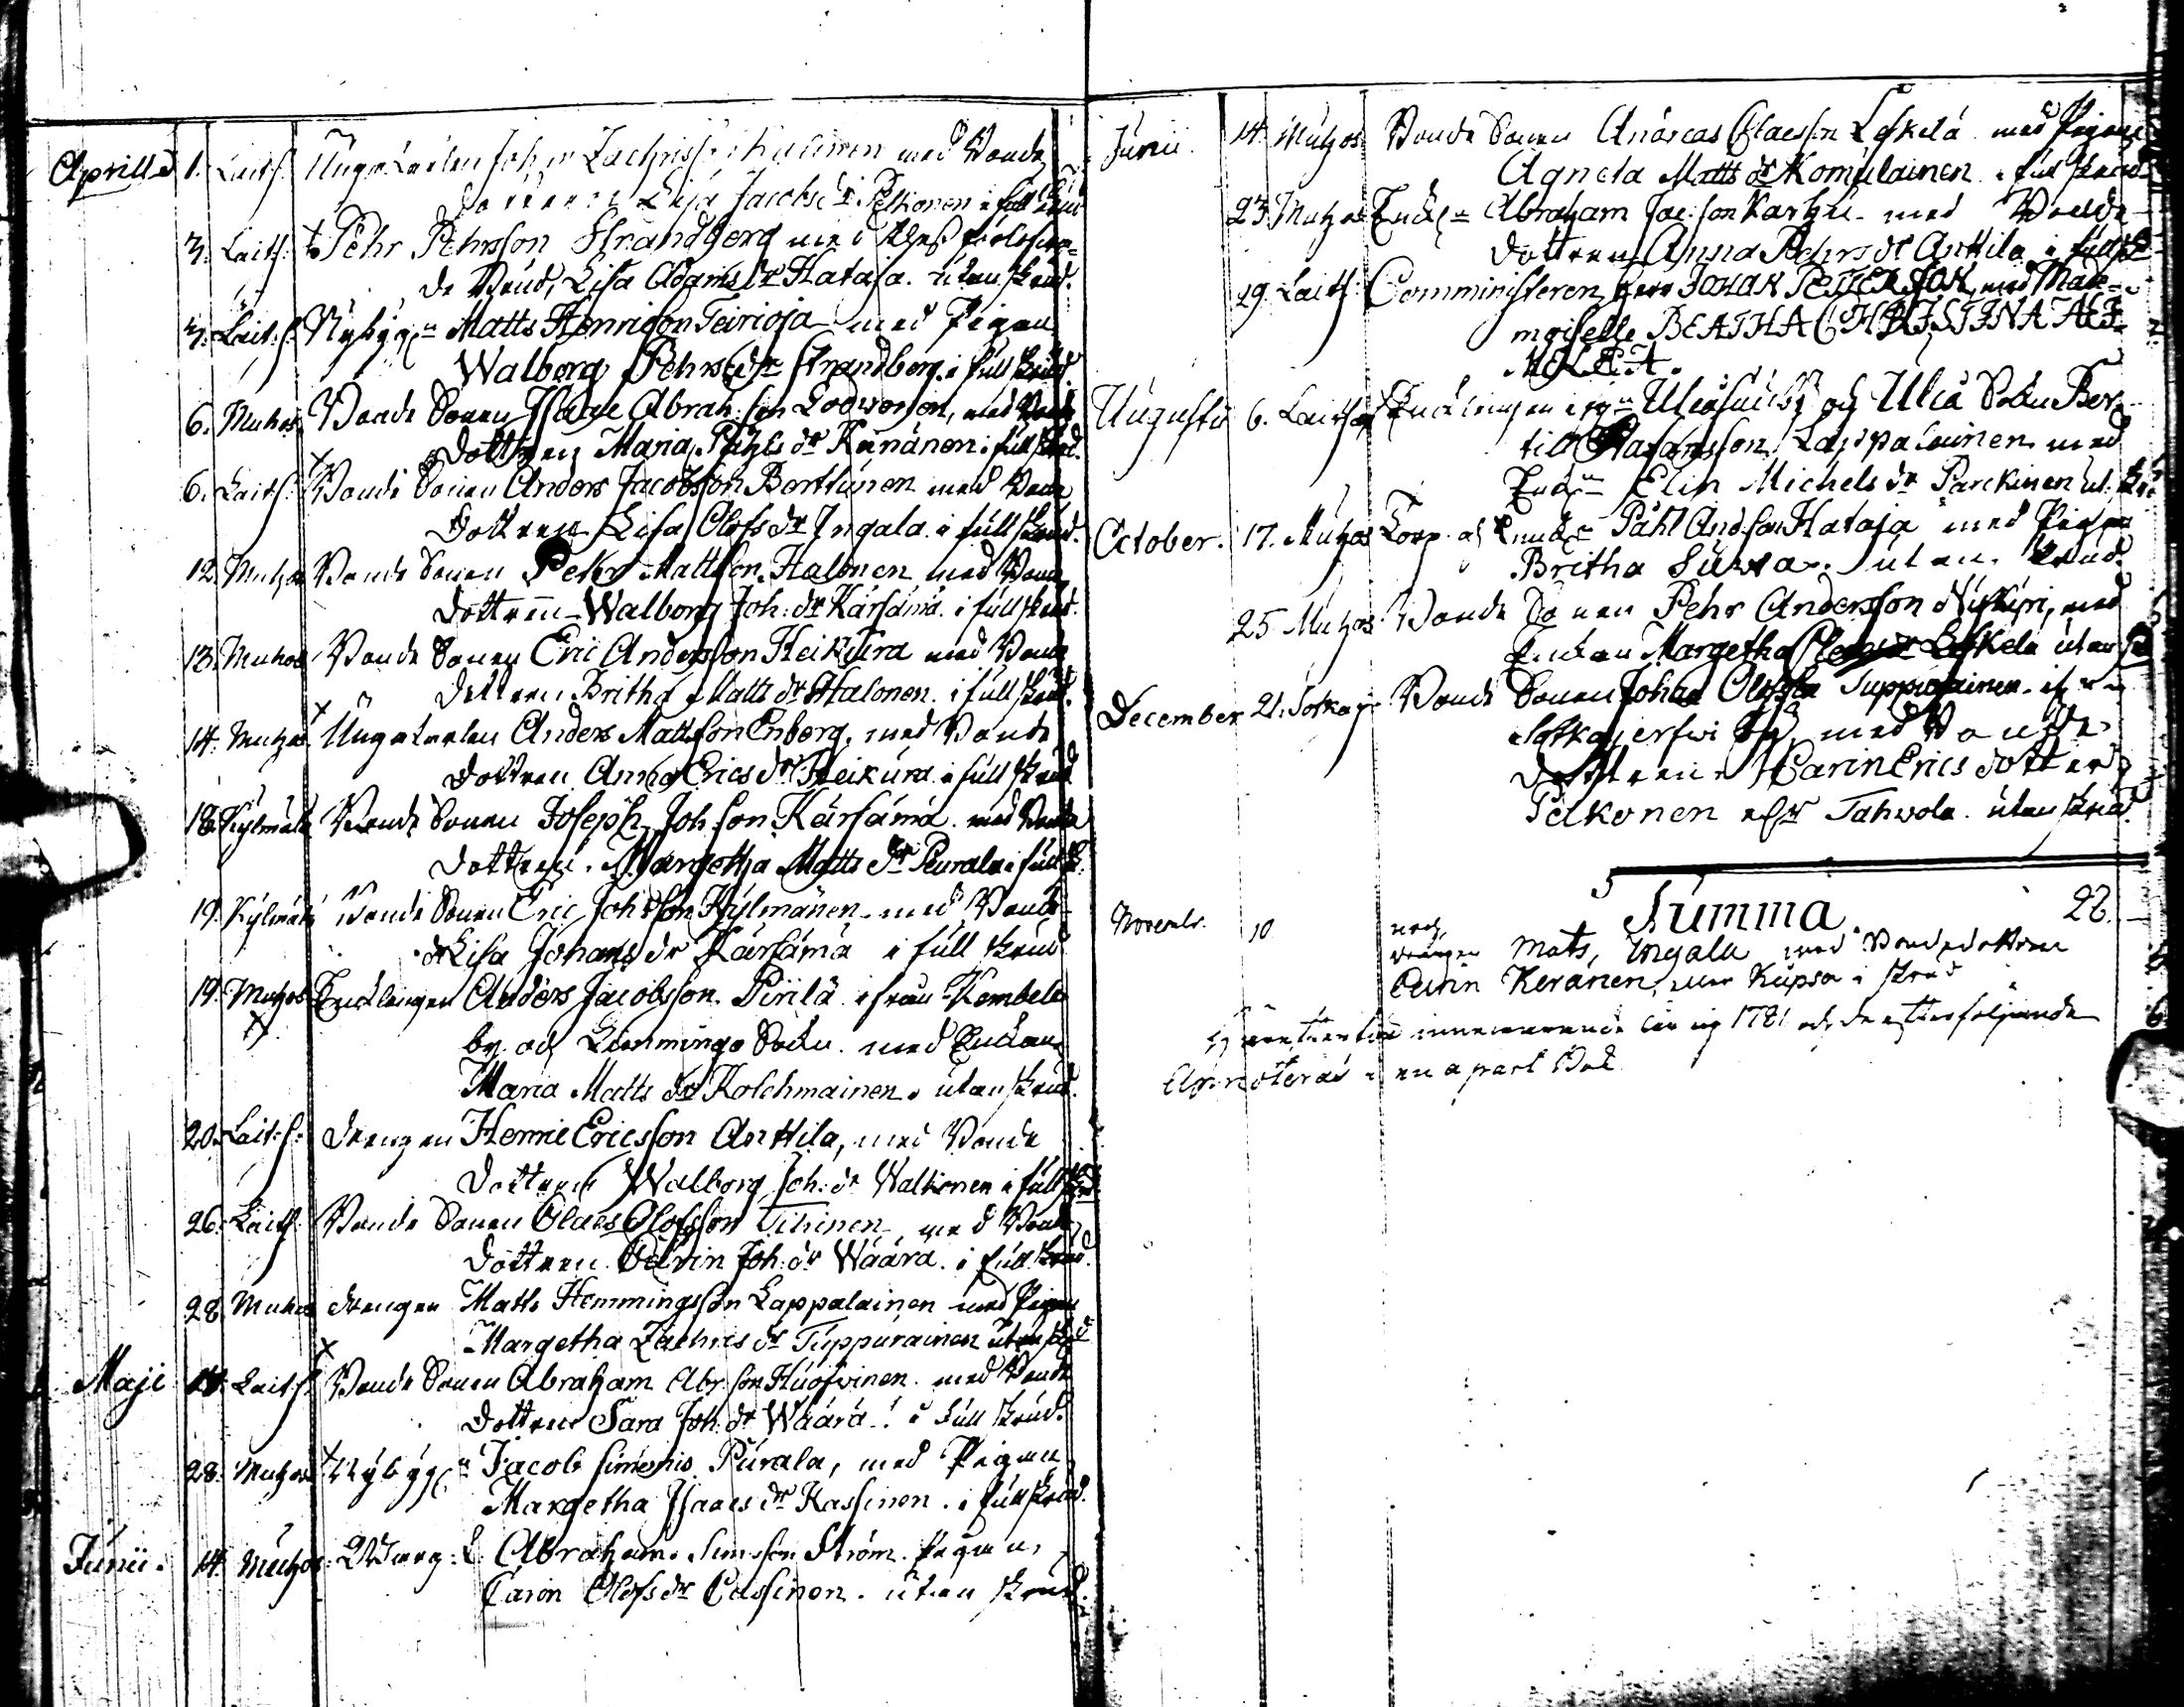 Aprill 1. Laits. Unga Karlen Johan Zachriss. med Bonde
dottren Lisa Jacobs dr Pelkonen i full skrud
3. Laits: Pehr Pehrsson Strandberg med dess
de Brud, Lisa Adams dr Hataja. utan skrud.
3. Laits. Nybygn Matts Henricson Teirioja med Pigan
Walborg Pehrs dr Strandberg. i full skrud.
6. Muhos Bonde Sonen Isaac Abrah. son Lodwonson, med Bonde
Dottren Maria Påhls dr Keinänen i full skrud.
6. Laits. Bonde Sonen Anders Jacobsson Berttunen med Bonde
Dottren Lisa Olofs dr Ingala. i full skrud.
12. Muhos Bonde Sonen Pehr Mattsson Halonen med Bonde
dottren Walborg Joh: dr Kärsämä. i full skrud.
13. Muhos Bonde Sonen Eric Andersson Heikura med Bonde
dottren Britha Matts dr Halonen. i full skrud.
14. Muhos Ungekarlen Anders Mattsson Enberg, med Bonde
dottren Anna Erics dr Heikura i full skrud
18. Kylmälä Bonde Sonen Joseph Joh. son Kärsämä. med Bonde
dottren. Margetha Matts dr Peurala i full sk.
19. Kylmälä Bonde Sonen Eric Joh. son Kylmänen med Bonde
dr Lisa Johans dr Kärsämä i full skrud
19. Muhos Enklingen Anders Jacobsson Pirilä ifrån Kembele
by och Limmingo Sokn. med Enkan
Maria Matts dr Kolehmainen. utan skrud.
20. Lait:s: drengen Henric Ericsson Anttila, med Bonde
Dottren Walborg Joh: dr Walkonen i full skrud.
26. Laits. Bonde Sonen Claes Olofsson Tihinen med Bonde
dottren Carin Joh: dr Wäärä. i full skrud.
28. Muhos drengen Matts Hemmingsson Lappalainen med Pigan
Margetha Zachris dr Tuppurainen utan skrud
Maji 14. Laits. Bonde Sonen Abraham Abr. son Huofwinen. med Bonde
dottren Sara Joh. dr Wäärä. i full skrud.
28. Muhos Nybygn Jacob Simonis Purala, med Pigan
Margetha Isaacs dr Kassinen. i full skrud.
Junii. 14. Muhos Abraham Simsson Ström. Pigan,
Carin Olofs dr Cassinen. utan skrud.
Junii. 14. Muhos Bonde Sonen Andreas Claesson Leskelä med Pigan
Agneta Matts dr Komulainen. i full skrud
23. Muhos Enkln Abraham Jac. son Karhu. med Bonde
dottren Anna Pehrs dr Anttila i full sk
29. Laits. Comministeren Herr JOHAN PETTER med Made-
moiselle BEATHA CHRISTINA

Augusti 6. Laits. Enklingen ifrn Uleåsu by och Uleå Sokn Ber-
till Stafansson Lappalainen med
Enkn Elin Michels dr Parckinen ut. skr.
October. 17. Muhos Corp. och Enkn Påhl And. son Hataja med Pigan
Britha Suwa. utan. skrud.
25 Muhos Bonde Sonen Pehr Andersson Nyskyri, med
Enkan Margetha Leskelä utan sk
December 21. Sotkaj. Bonde Sonen Johan Olofsson Tuppurainen. ifrn
Sotkajerfwi by, med Bonde
dottren Carin Erics dotter
Pelkonen Tahwola. utan skrud.
Summa 22.
Novembr. 10 noch
drengen Mats, Ingala med Bondedottren
Carin Keränen, Kupsa i skrud
innewarande åhr 1781 och de efterföljande
Annoteras i en apart Bok.